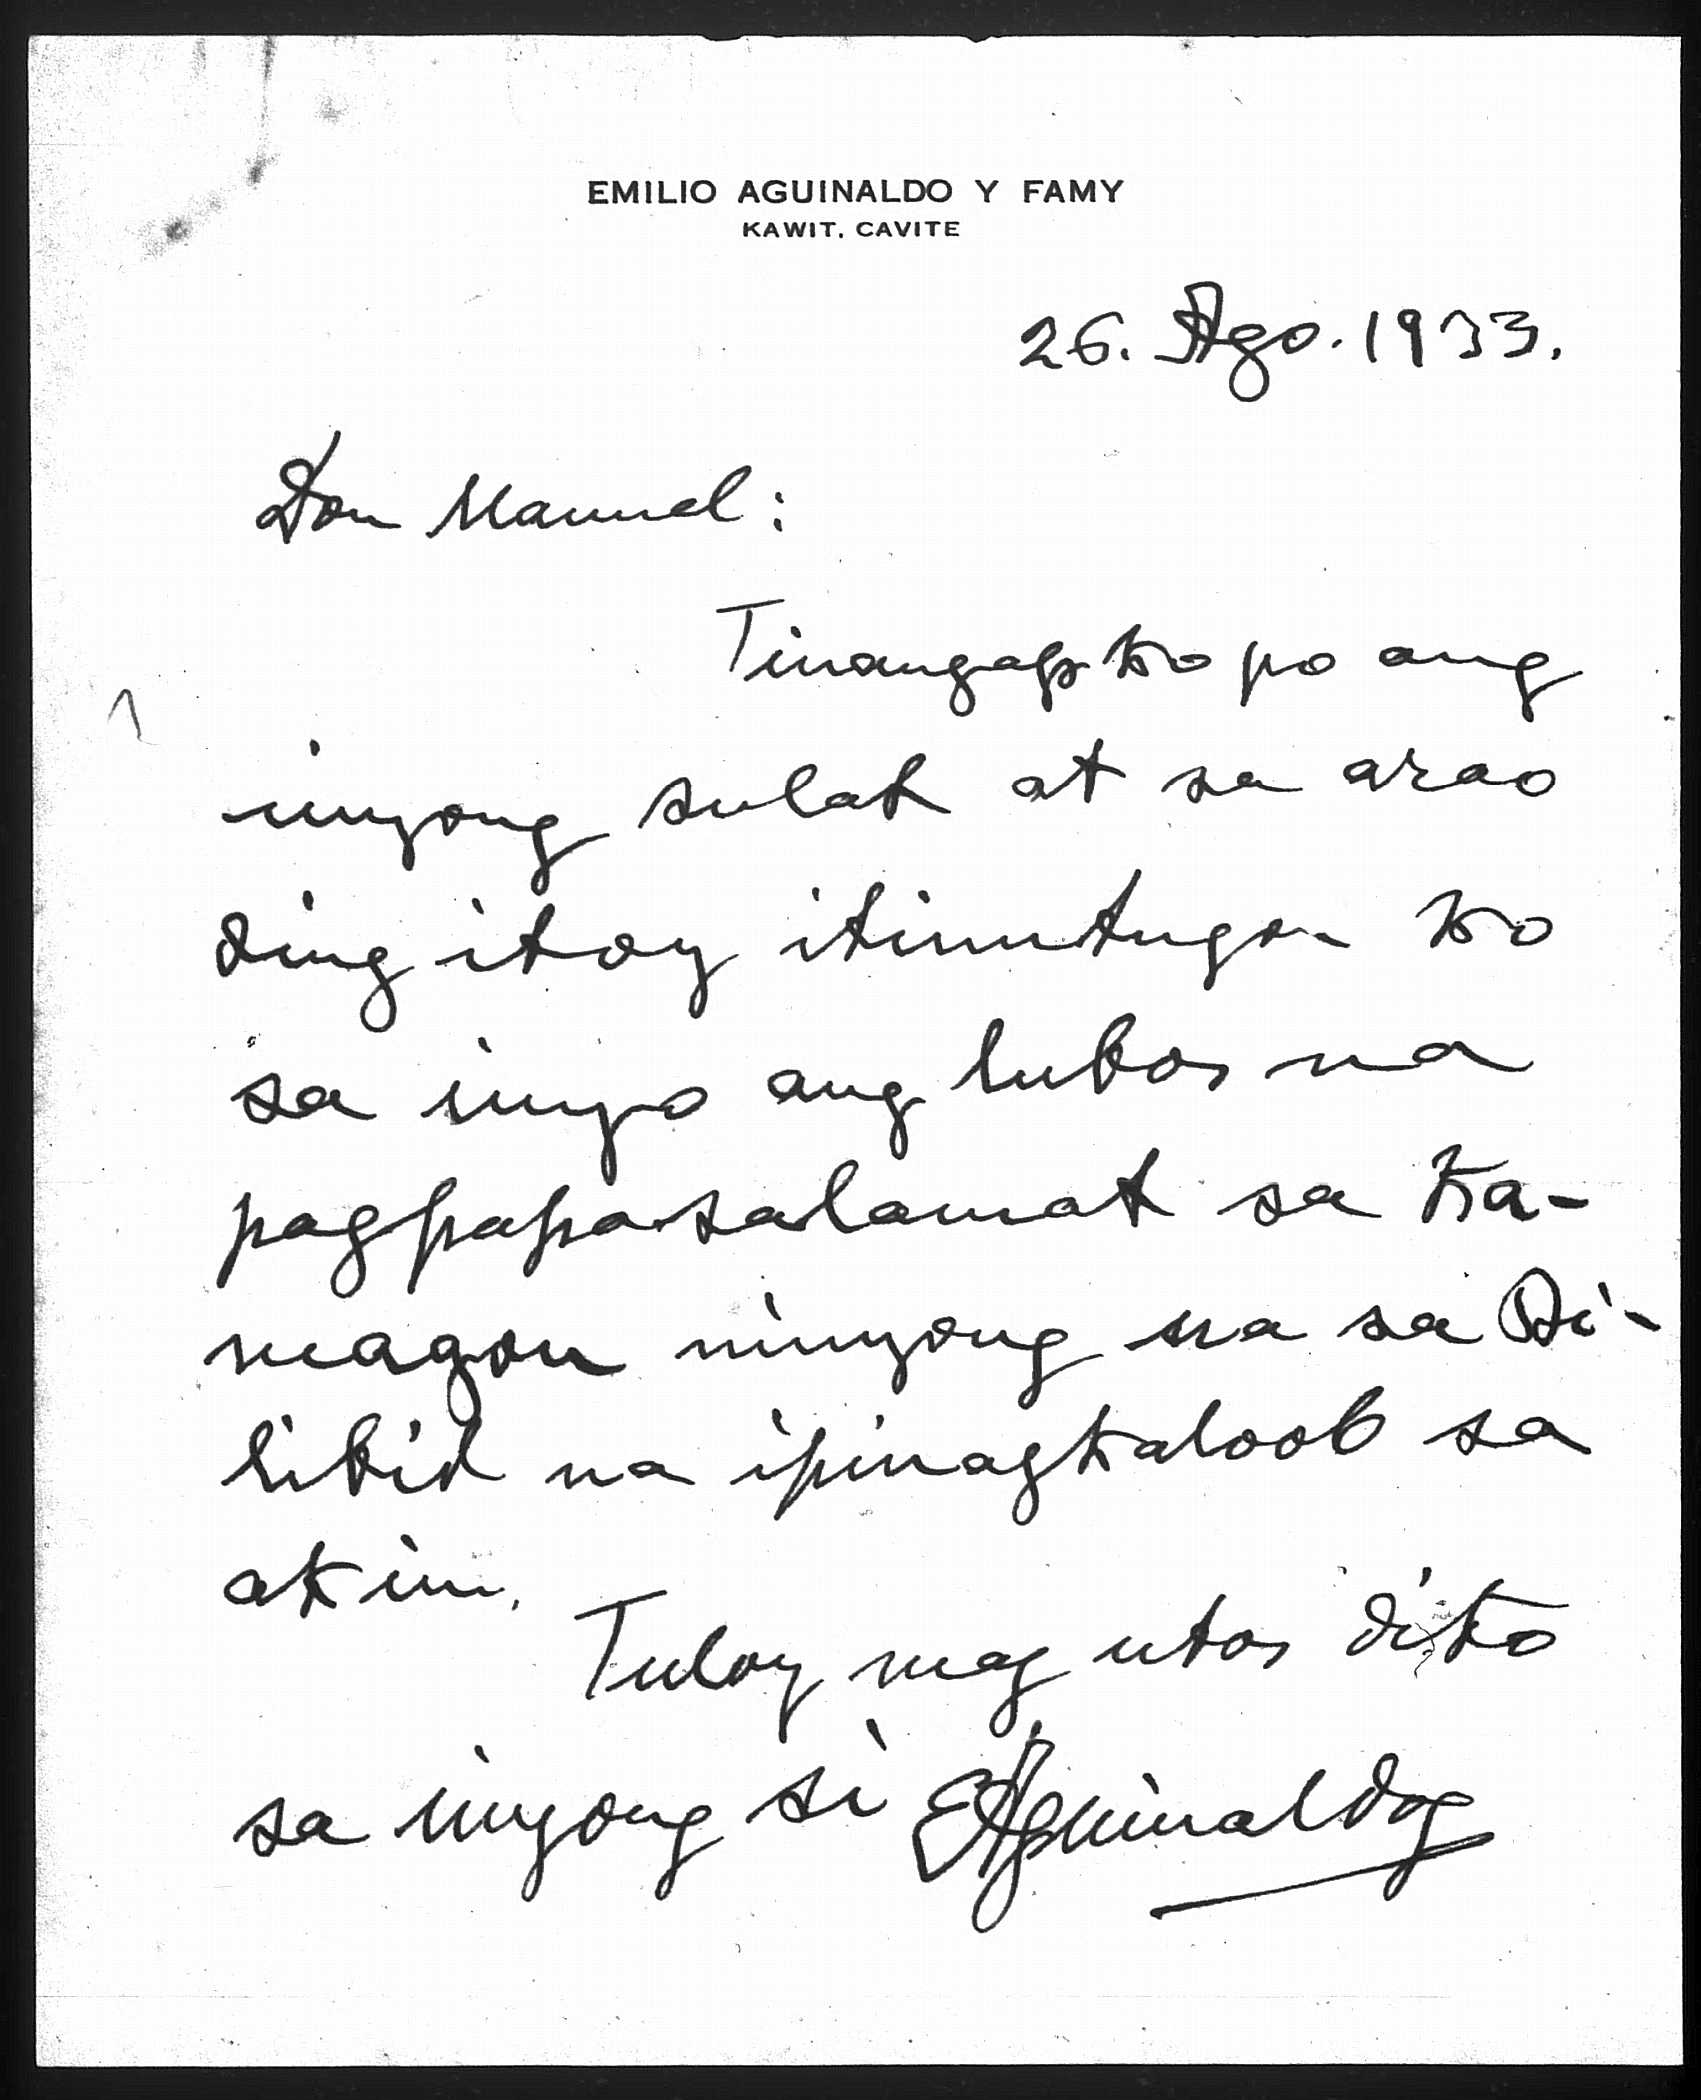 EMILIO AGUINALDO Y FAMY
KAWIT, CAVITE
26. Ago. 1933.
Don Manuel:
Tinangap ko po ang
inyong sulat at sa arao
ding itoy itinutugon ko
sa inyo ang lubos na
pagpapasalamat sa ka-
magon ninyong na sa Bi-
libid na ipinagkaloob sa
akin.
Tuloy mag utos dito
sa inyong si EAguinaldoy